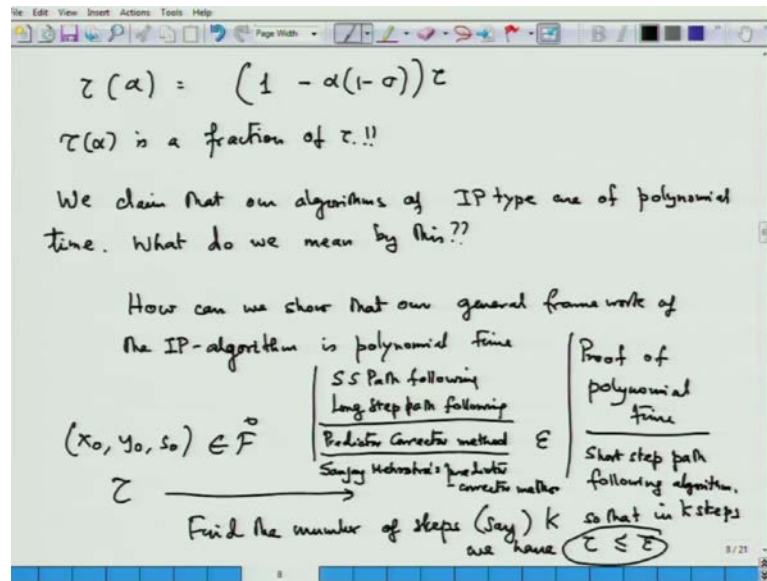 File Edit View Insert Actions Tools Help
Page Width
B I
τ(α) = (1 - α(1-σ))τ
τ(α) is a fraction of τ.!!
We claim that our algorithms of IP type are of polynomial
time. What do we mean by this??
How can we show that our general framework of
the IP-algorithm is polynomial time
SS Path following
Long Step path following
Predictor Corrector method
Sanjay Mehrotra's predictor
-corrector method
(x₀, y₀, s₀) ∈ F̊
τ
ε
Proof of
polynomial
time
Short step path
following algorithm.
Find the number of steps (say) K so that in K steps
we have τ ≤ ε
8/21
8